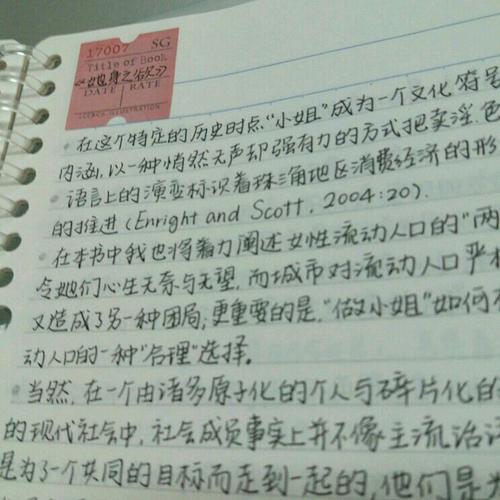 17007 SG
Title of Book
《她身之欲》
DATE RATE
在这个特定的历史时点“小姐”成为一个文化符号
内涵,以一种悄然无声却强有力的方式把卖淫、色
语言上的演变标识着珠三角地区消费经济的形
的推进(Enright and Scott, 2004:20).
在本书中我也将着力阐述女性流动人口的“两
令她们心生无奈与无望,而城市对流动人口严
又造成了另一种困局;更重要的是,“做小姐”如何
动人口的一种“合理”选择.
当然,在一个由诸多原子化的个人与碎片化的
的现代社会中,社会成员事实上并不像主流
是为了一个共同的目标而走到一起的,他们是